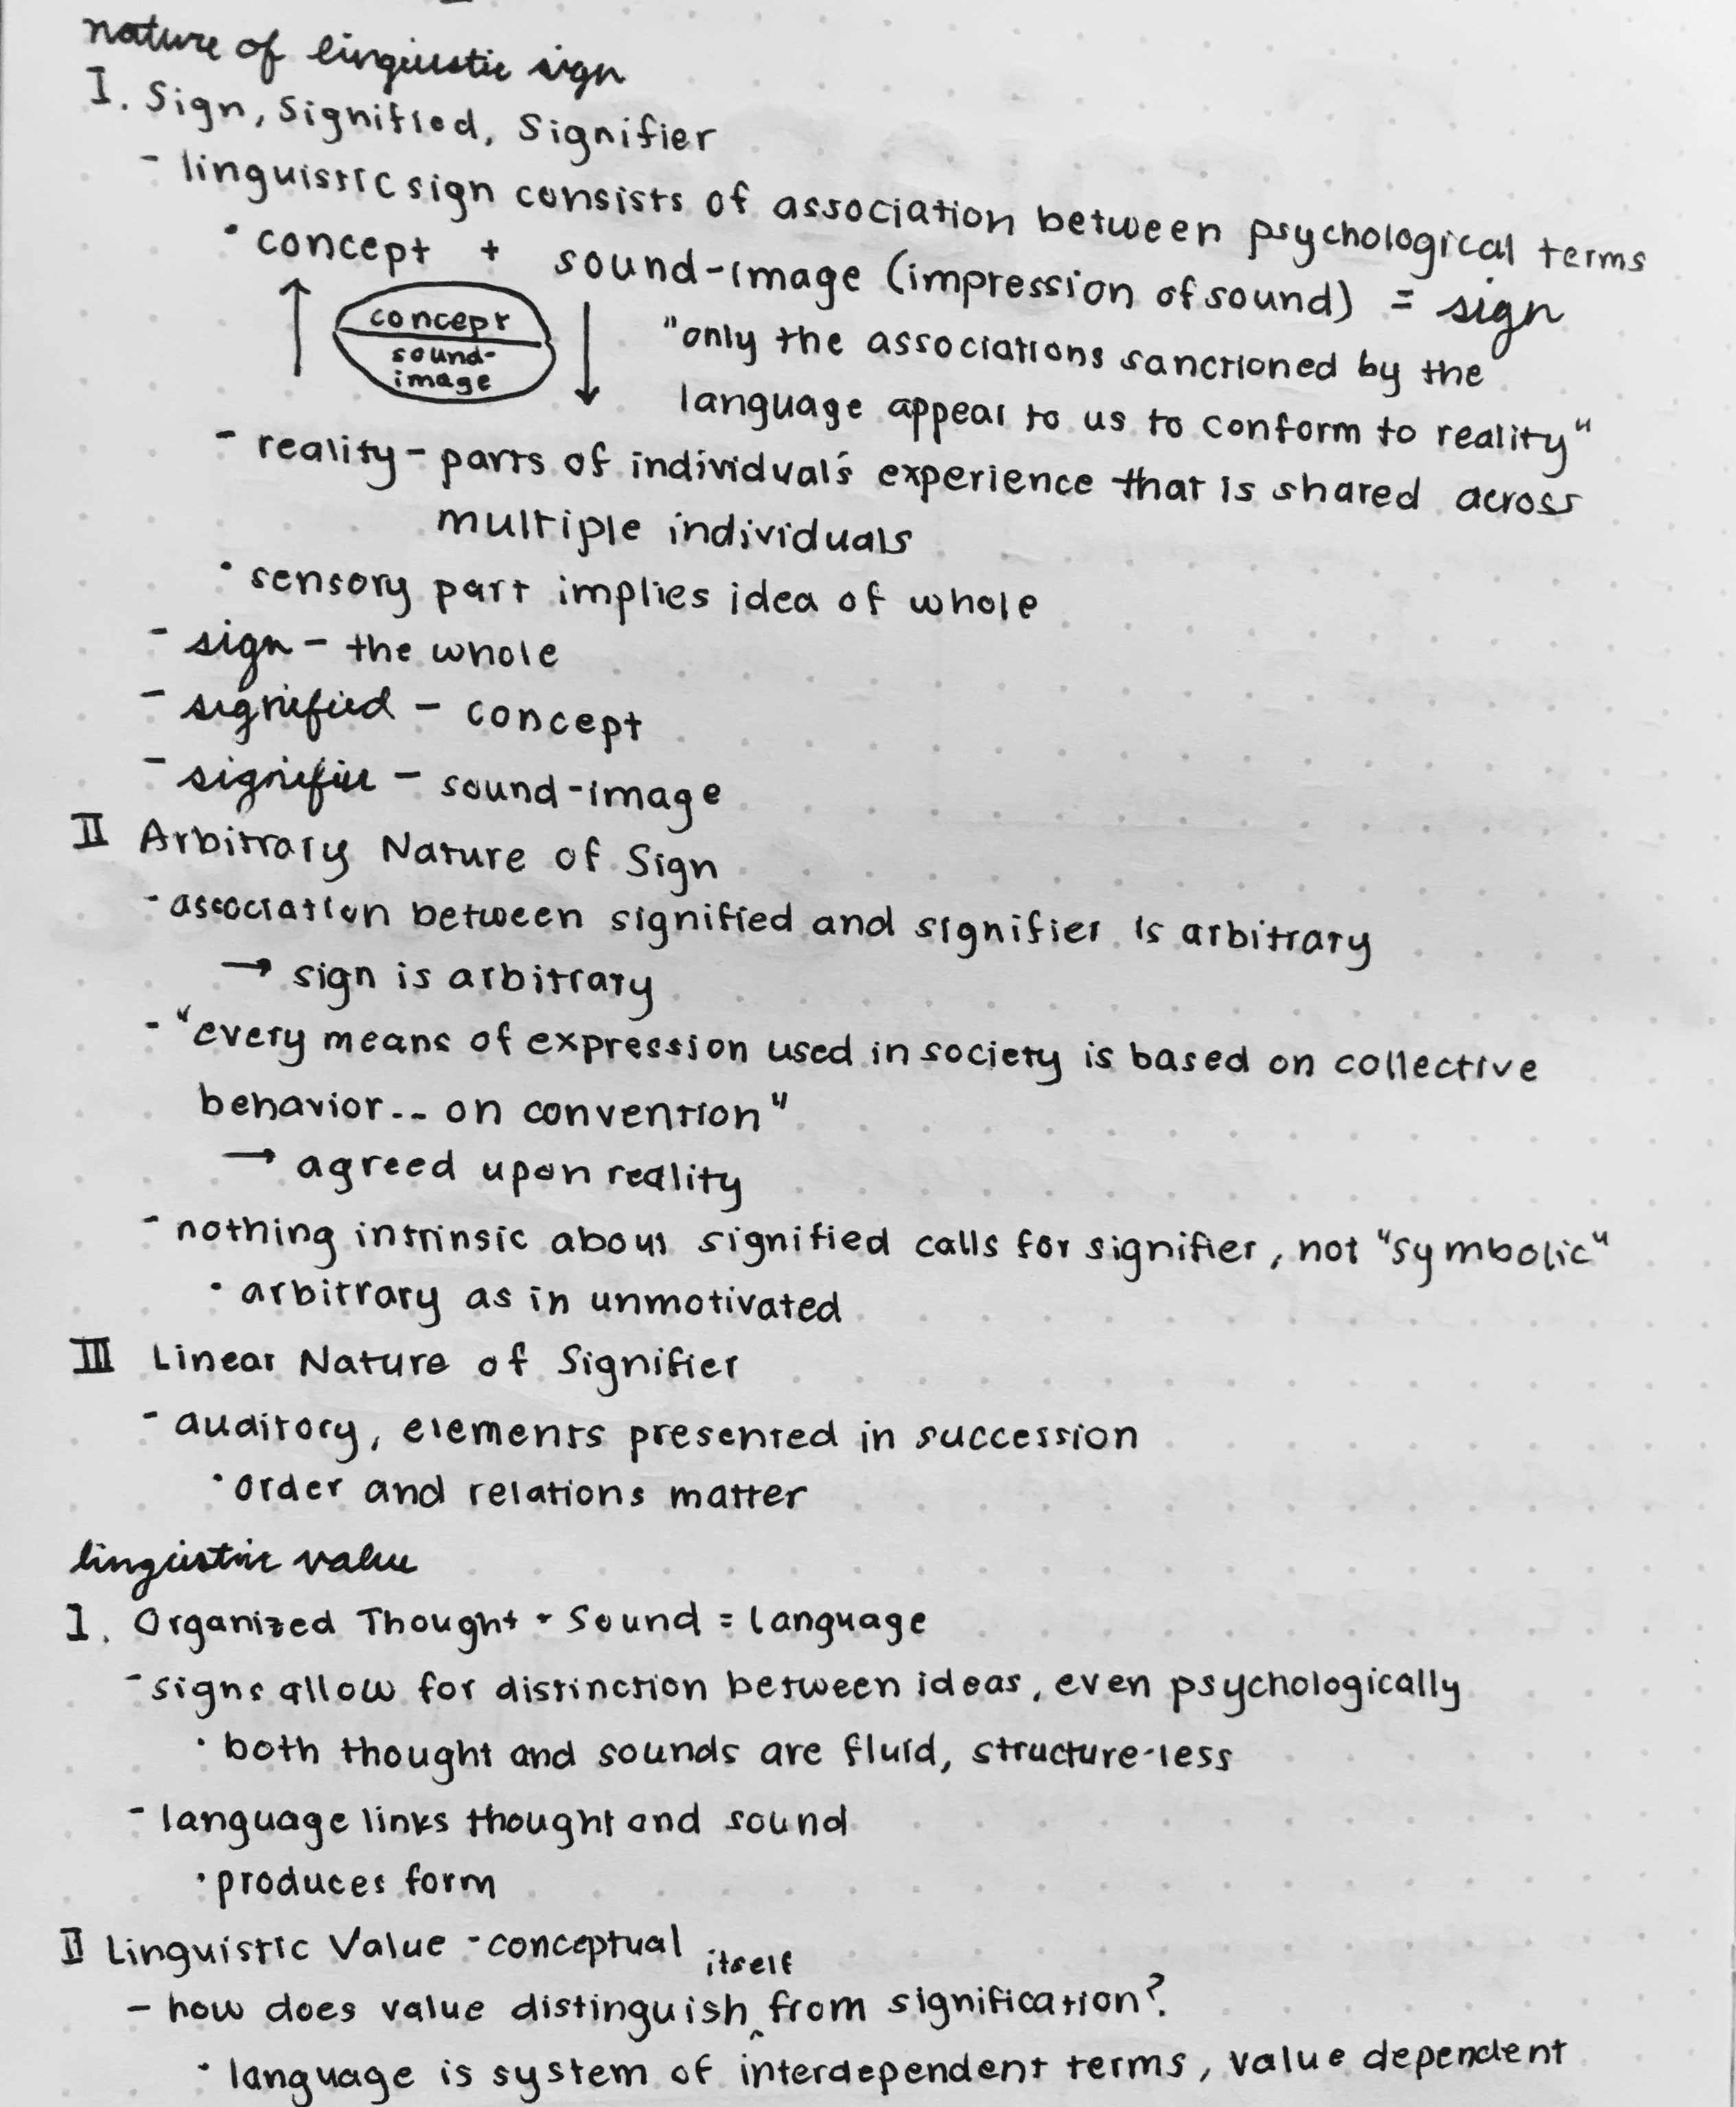 nature of linguistic sign
I. Sign, Signified, Signifier
- linguistic sign consists of association between psychological terms
• concept + sound-image (impression of sound) = sign
concept
sound-
image
"only the associations sanctioned by the
language appear to us to conform to reality"
- reality - parts of individual's experience that is shared across
multiple individuals
• sensory part implies idea of whole
- sign - the whole
- signified - concept
- signifier - sound-image
II Arbitrary Nature of Sign
- association between signified and signifier is arbitrary
→ sign is arbitrary
- "every means of expression used in society is based on collective
behavior... on convention"
→ agreed upon reality
- nothing intrinsic about signified calls for signifier, not "symbolic"
• arbitrary as in unmotivated
III Linear Nature of Signifier
- auditory, elements presented in succession
• order and relations matter
linguistic value
I. Organized Thought + Sound = language
- signs allow for distinction between ideas, even psychologically
• both thought and sounds are fluid, structure-less
- language links thought and sound
• produces form
II Linguistic Value - conceptual
- how does value distinguish itself from signification?
• language is system of interdependent terms, value dependent